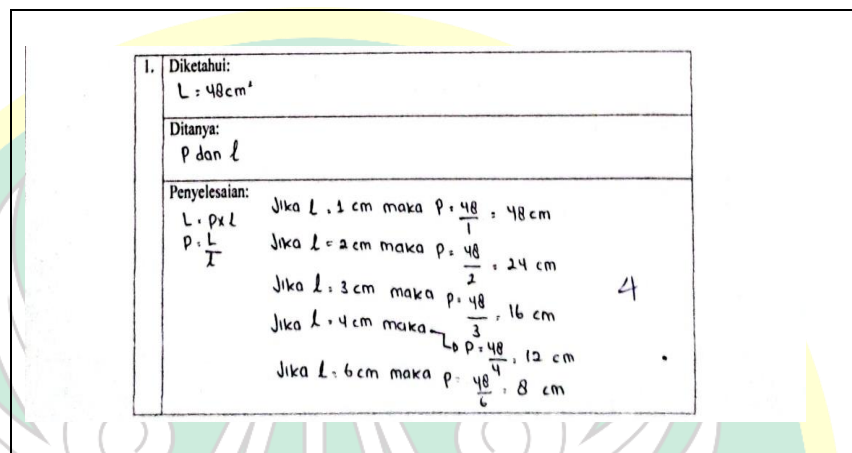 1. Diketahui:
L = 48cm²
Ditanya:
P dan l
Penyelesaian:
L = p x l
P = L/l
Jika l = 1 cm maka P = 48/1 = 48 cm
Jika l = 2 cm maka P = 48/2 = 24 cm
Jika l = 3 cm maka P = 48/3 = 16 cm
Jika l = 4 cm maka → P = 48/4 = 12 cm
Jika l = 6 cm maka P = 48/6 = 8 cm
4